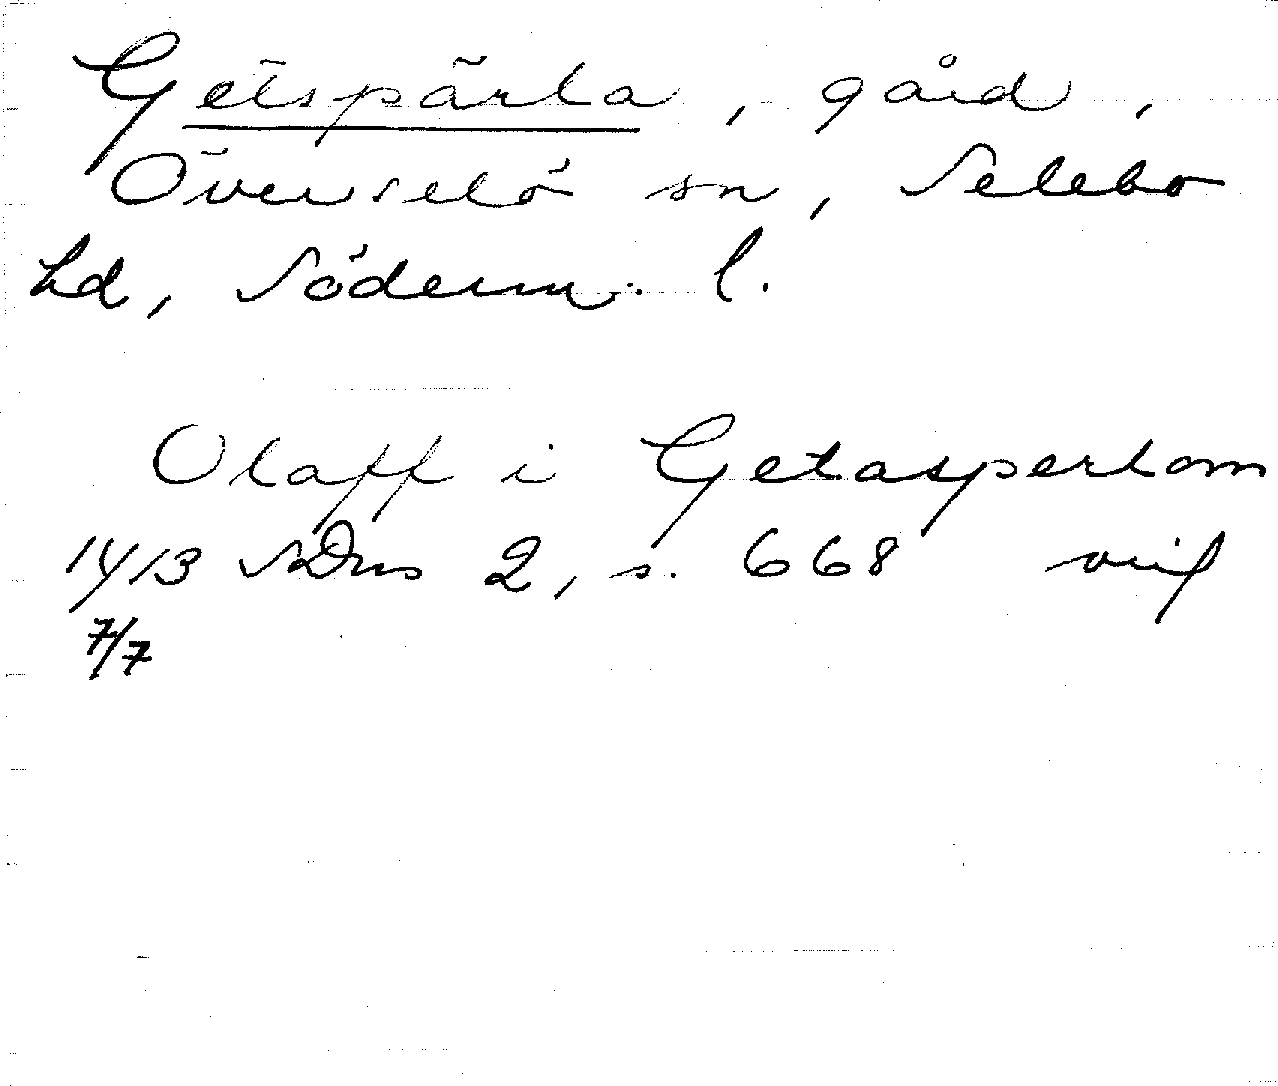 Getspärla, gård,
Överselö sn, Selebo
hd, Söderm. l.
Olaff i Getasperlom
1413 SDns 2, s. 668 
7/7